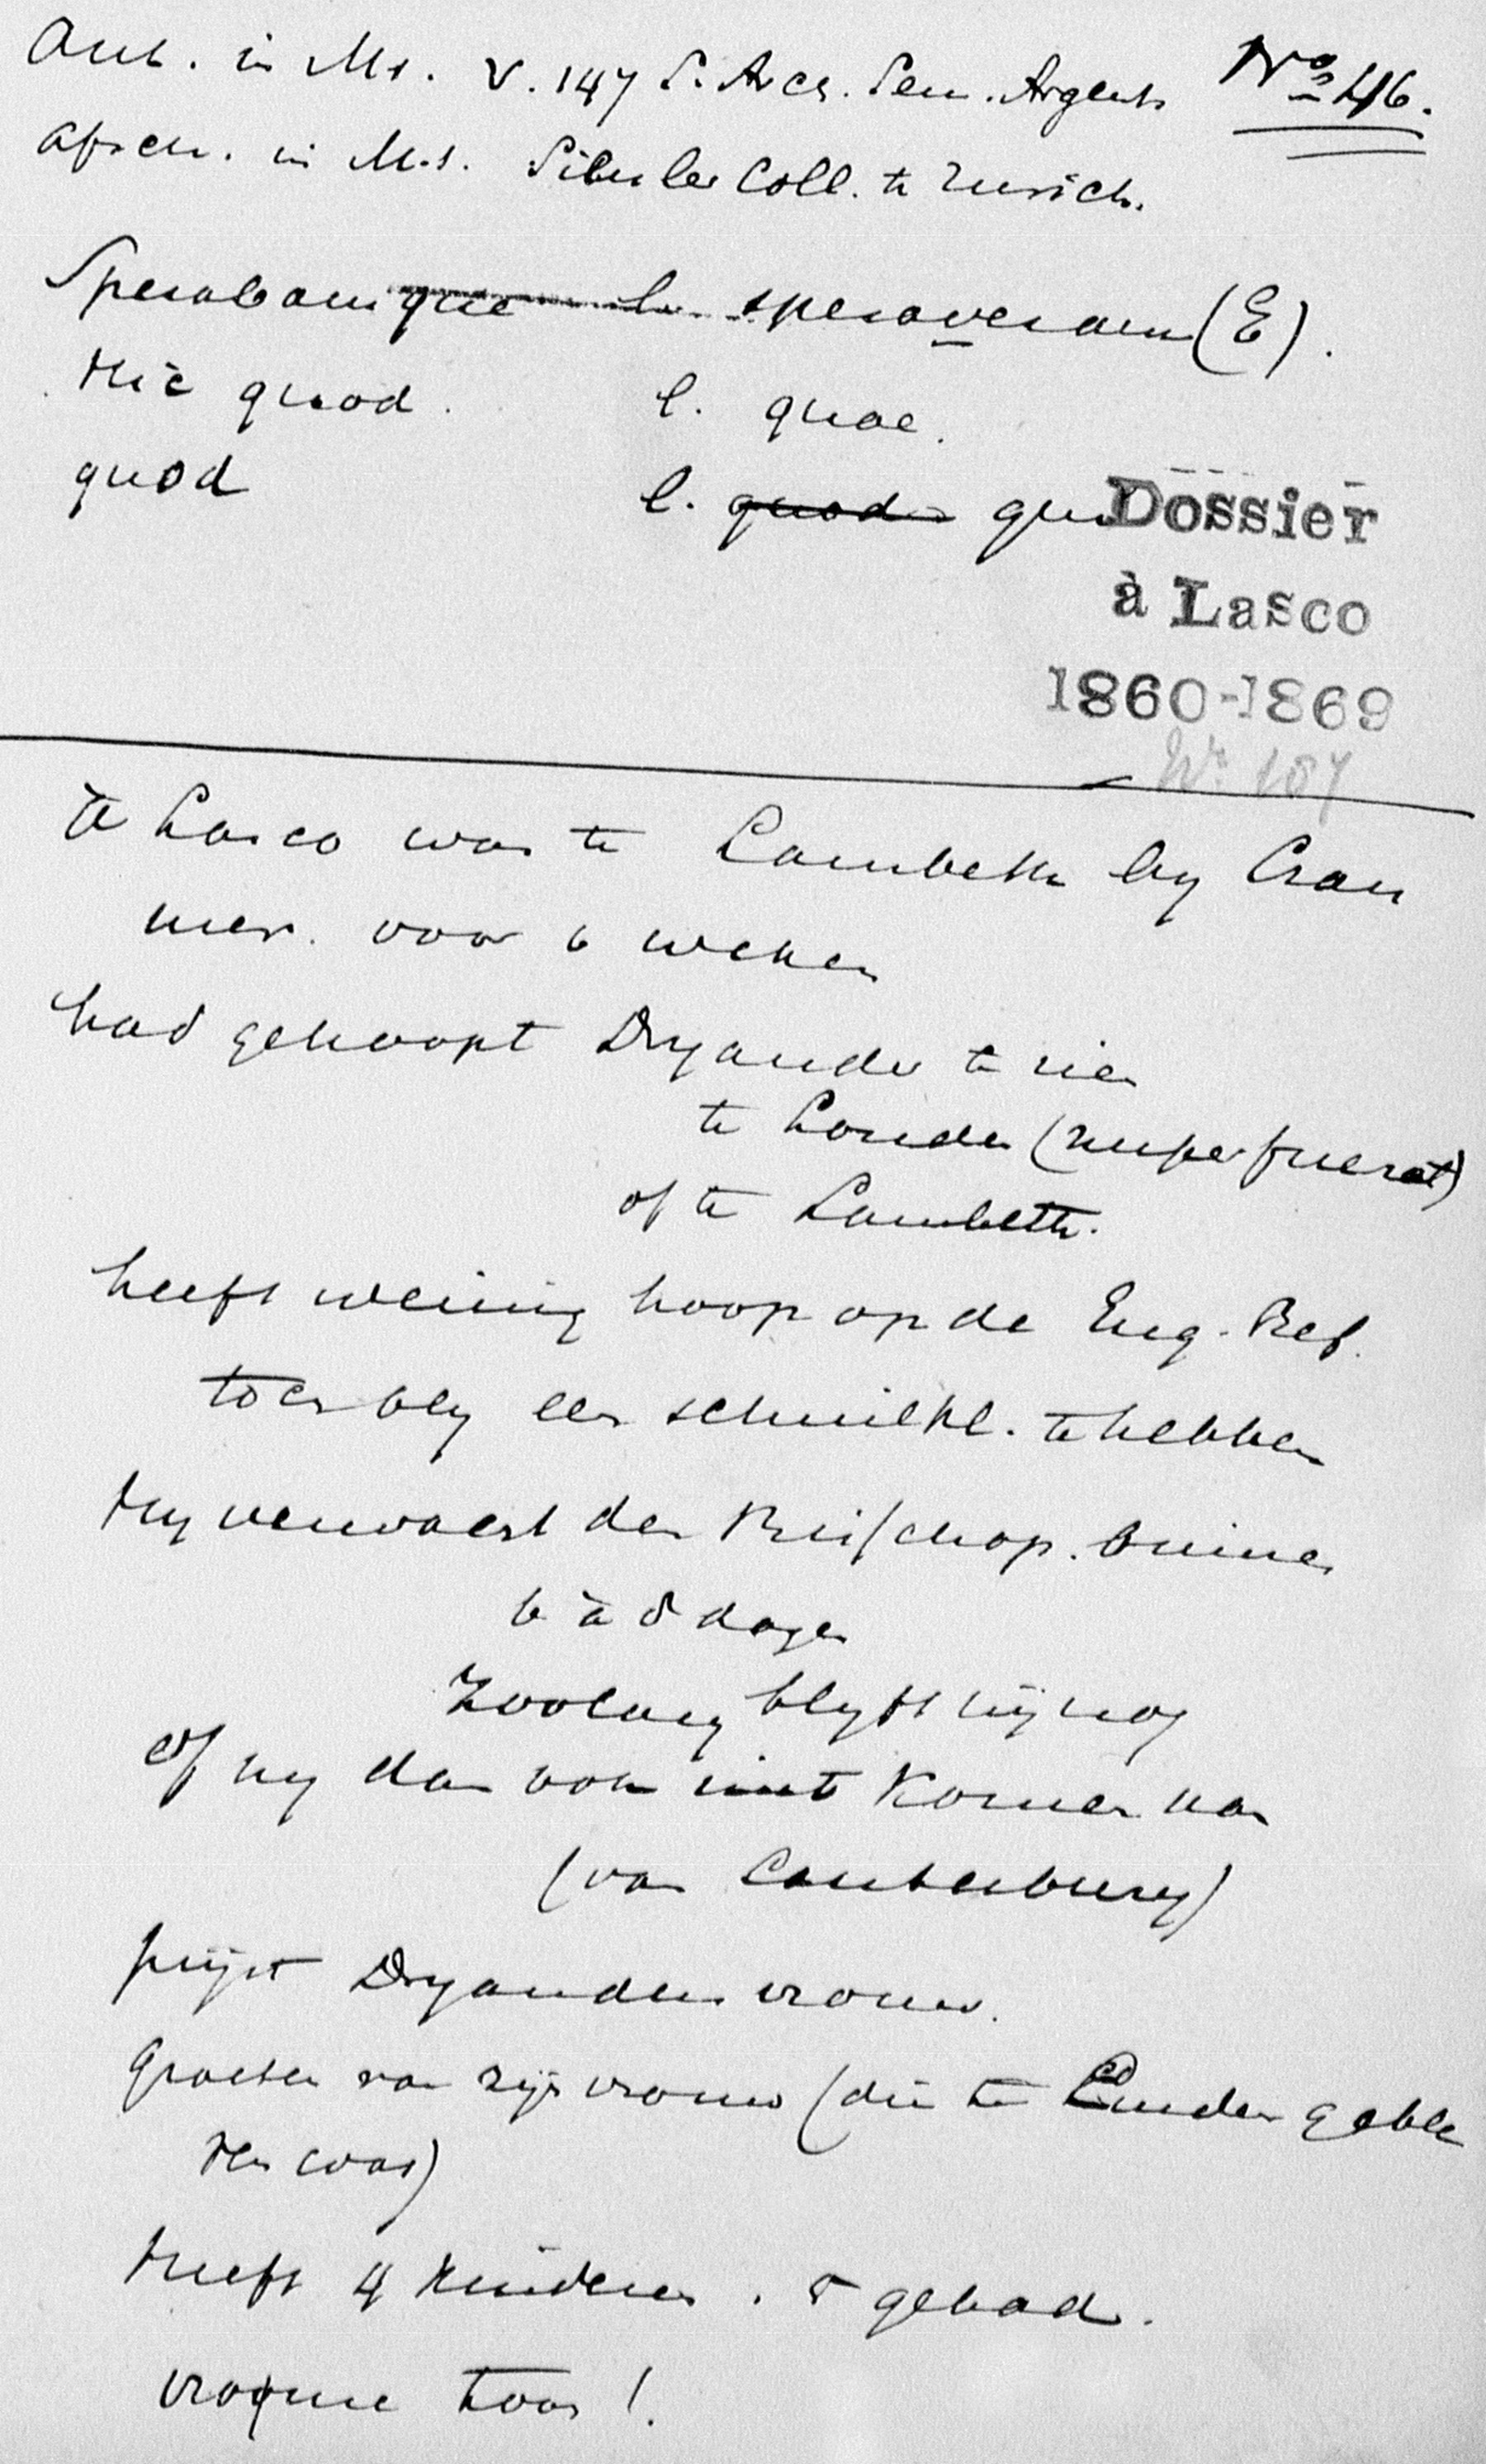 Aut. in Ms. V. 147 S. Arch. Sem. Argent. No 46.
Afsch. in M.s. Simler Coll. te Zurich.
Sperabamque l. speraveram (E).
Hic quod. l. quae.
quod l. quod
Dossier
à Lasco
1860-1869
No 167
à Lasco was te Lambeth by Cran
mer. voor 6 weken
had gehoopt Dryander te zien
te Londen (nuper fuerat)
of te Lambeth.
heeft weinig hoop op de Eng. Ref.
toch bly een schuilpl. te hebben
Hy verwacht den Bisschop. binnen
6 à 8 dagen
Zoolang blyft hij nog
of hy dan ook niet komen kan
(van Canterbury)
prijst Dryanders vrouw.
Groeten van zijn vrouw (die te Emden geble
ven was)
Heeft 4 kinderen. 5 gehad.
vrome toon!